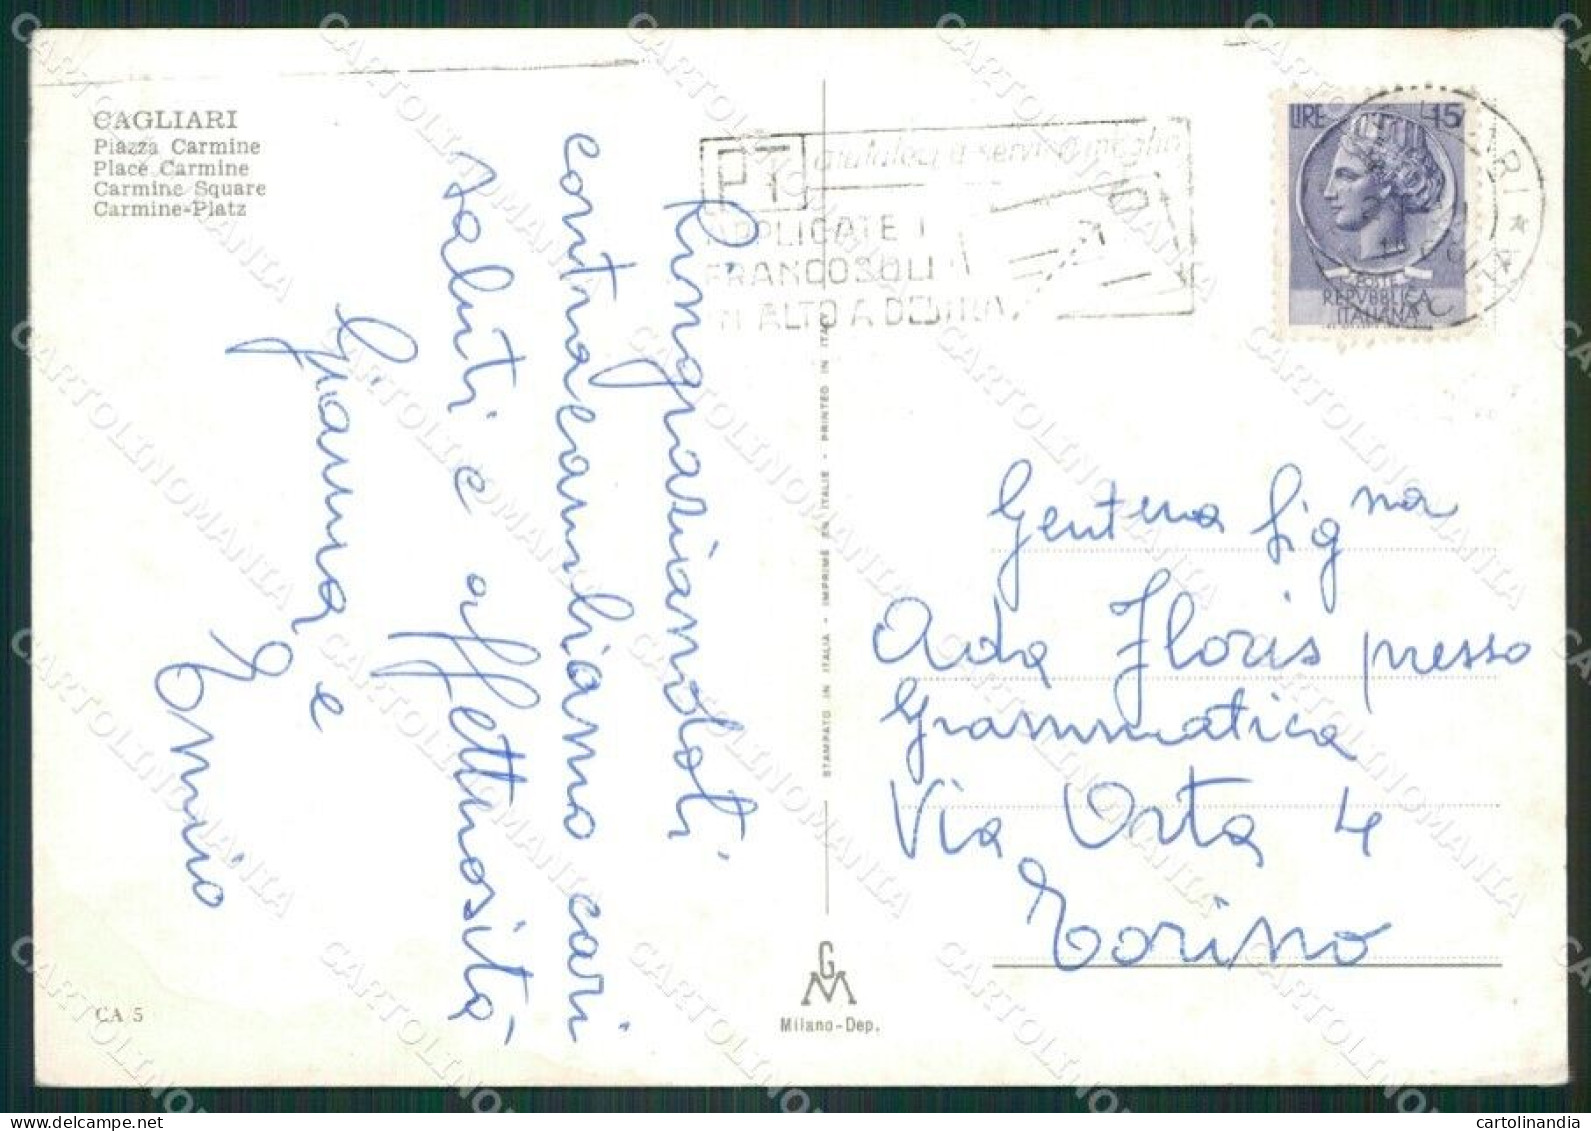 CAGLIARI
Piazza Carmine
Place Carmine
Carmine Square
Carmine-Platz
Ringraziandoti
contraccambiamo cari
saluti e affettuosità
Gianna e
PT aiutateci a servirvi meglio
APPLICATE I
FRANCOBOLLI
IN ALTO A DESTRA
LIRE 45
POSTE
REPVBBLICA
ITALIANA
Gent ma Sig na
Ada Floris presso
Grammatica
Via Orta 4
Torino
STAMPATO IN ITALIA - IMPRIMÉ EN ITALIE - PRINTED IN ITALY
CA 5
GM
Milano-Dep.
CARTOLINOMANIA
cartolinandia